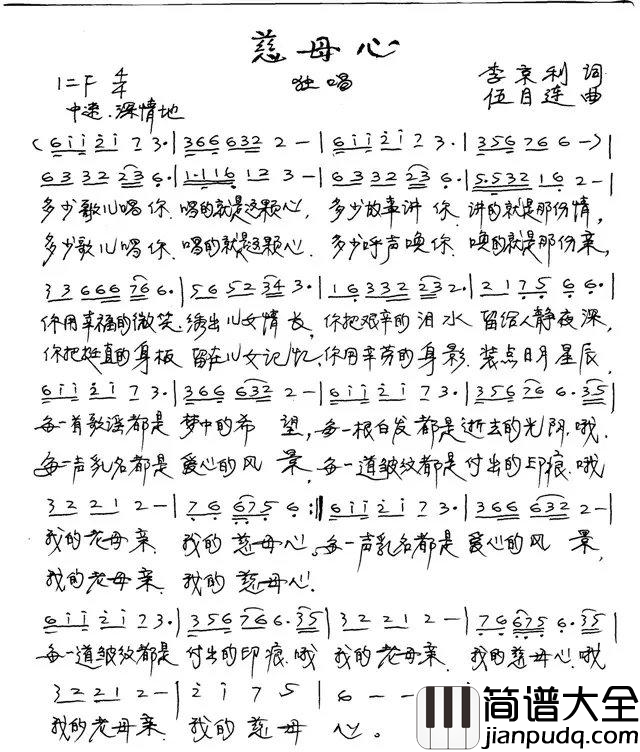 慈母心
独唱
1=F 4/4
李京利 词
中速.深情地
伍目连 曲
(6i i 2 i 7 3·|3 6 6 6 3 2 2 -|6 i i 2 i 7 3·|3 5 6 7 6 6 -)|
6 3 3 2 2 3 6·|1·1 1 6 1 2 3 -|6 3 3 2 2 3 6·|5·5 3 2 1 6 2 -|
多少歌儿唱你.唱的就是这颗心，多少故事讲你.讲的就是那份情，
多少歌儿唱你.唱的就是这颗心.多少呼声唤你.唤的就是那份亲，
3 3 6 6 6 7 6 6·|5 6 5 2 3 4 3·|1 6 3 3 2 2 3 2·|2 1 7 5 6 6·|
你用幸福的微笑.绣出儿女情长，你把艰辛的泪水 留给人静夜深，
你把挺直的身板 留在儿女记忆，你用辛劳的身影.装点日月星辰，
6 i i 2 i 7 3·|3 6 6 6 3 2 2 -|6 i i 2 i 7 3·|3 5 6 7 6 6·3 5|
每一首歌谣都是 梦中的希 望，每一根白发都是逝去的光阴.哦.
每一声乳名都是 爱心的风 景.每一道皱纹都是付出的印痕.哦
3 2 2 1 2 -|7 6 6 7 5 6:‖6 i i 2 i 7 3·|3 6 6 6 3 2 2 -|
我的老母亲.我的慈母心。每一声乳名都是 爱心的风 景，
我的老母亲.我的慈母心.
6 i i 2 i 7 3·|3 5 6 7 6 6·3 5|3 2 2 1 2 -|7 6 6 7 5 6·3 5|
每一道皱纹都是 付出的印痕.哦 我的老母亲.我的慈母心.哦
3 2 2 1 2 -|2 i 7 5|6 - -
我的老母亲.我的慈母 心。
简谱大全
www.jianpudq.com